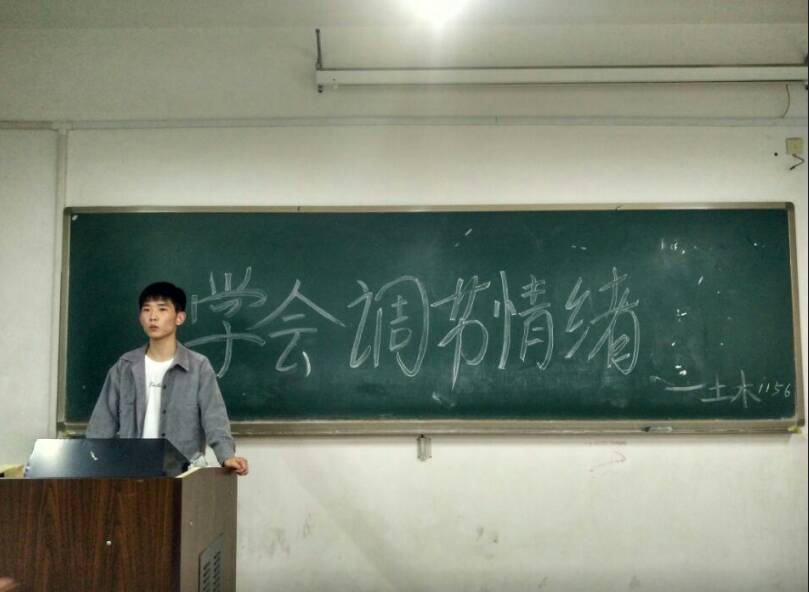 学会调节情绪
——土木1156